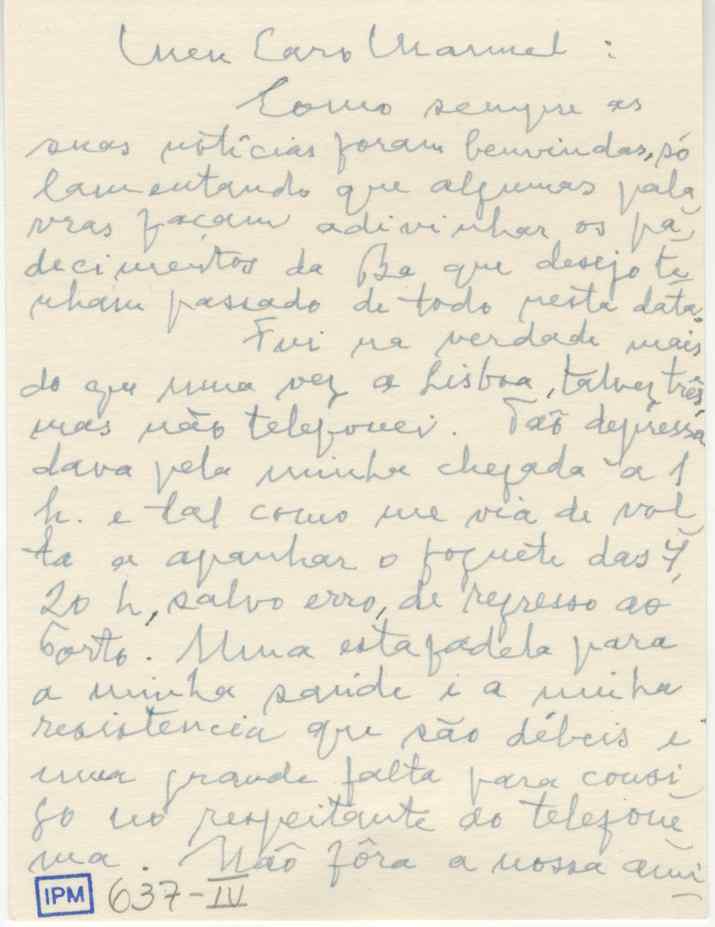 Meu Caro Manuel:
Como sempre as
suas notícias foram benvindas, só
lamentando que algumas pala-
vras façam adivinhar os pa-
decimentos da Ba que desejo te-
nham passado de todo nesta data.
Fui na verdade mais
do que uma vez a Lisboa, talvez três,
mas não telefonei. Tão depressa
dava pela minha chegada à 1
h. e tal como me via de vol-
ta a apanhar o foguete das 7,
20 h, salvo erro, de regresso ao
Porto. Uma estafadela para
a minha saúde e a minha
resistencia que são débeis e
uma grande falta para consi-
go no respeitante ao telefone-
ma. Não fôra a nossa ami-
IPM 637-IV